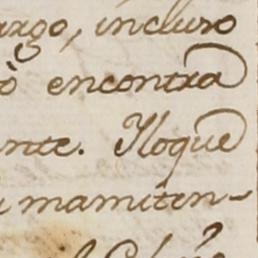 argo, incluso
ò encontra
nte. Yloque
mamiten-